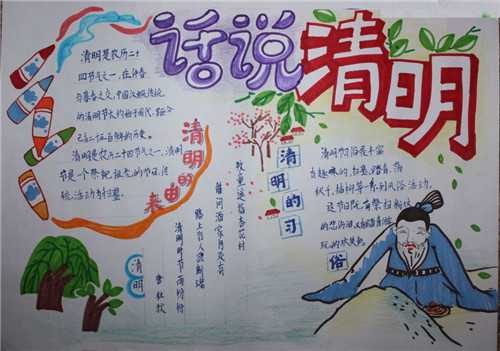 话说清明
清明是农历二十
四节气之一，在仲春
与暮春之交，中国汉族传统
的清明节大约始于周代，距今
已有二千五百多年的历史。
清明是农历二十四节气之一，清明
节是一个祭祀祖先的节日，传
统活动为扫墓。
清明的来由
清明
唐 杜牧
清明时节雨纷纷
路上行人欲断魂
借问酒家何处有
牧童遥指杏花村
清明的习俗
清明节习俗是丰富
有趣的，扫墓、踏青、荡
秋千、插柳等一系列风俗活动。
这节日既有祭扫新坟
的悲伤泪，又有踏青游
玩的欢笑声